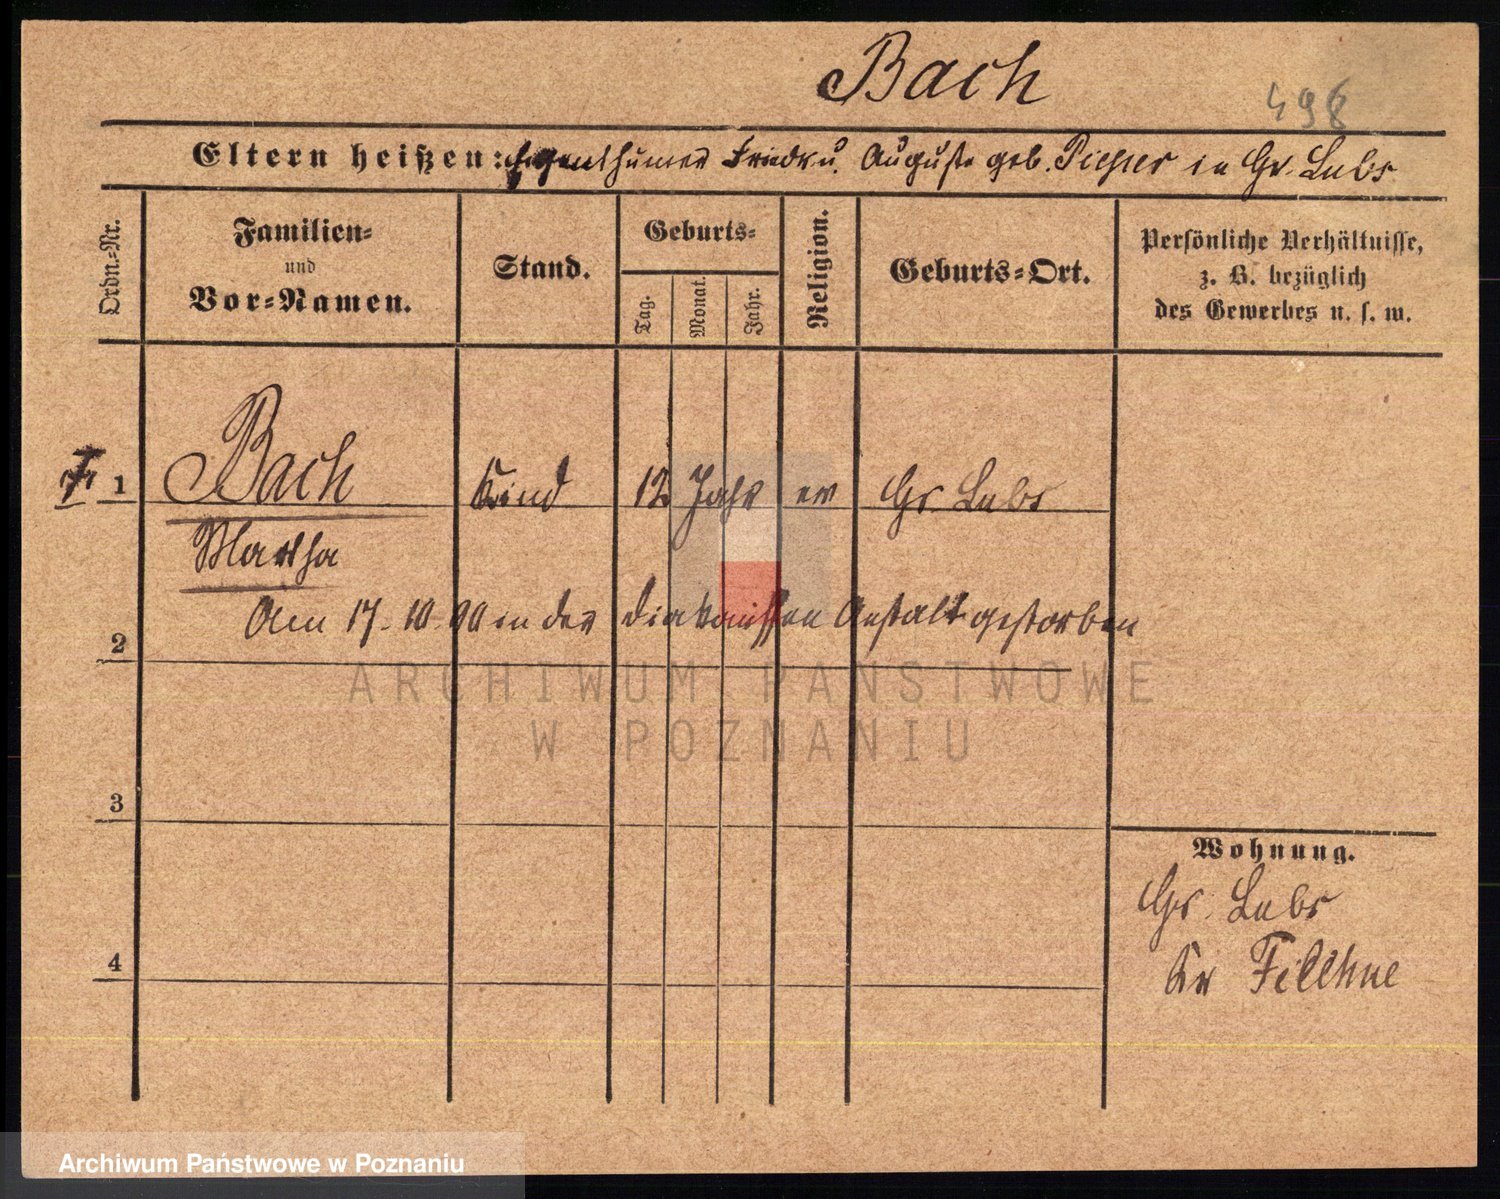 Bach
498
Eltern heißen: Eigenthümer Friedr u. Auguste geb. in Gr. Lubs
Ordn.-Nr.
Familien-
und
Vor-Namen.
Stand.
Geburts-
Tag.
Monat.
Jahr.
Religion.
Geburts-Ort.
Persönliche Verhältnisse,
z. B. bezüglich
des Gewerbes u. s. w.
1 Bach Kind 12 Jahr ev Gr. Lubs
Martha
Am 17. 10. 90 in der Diakonissen Anstalt gestorben
2
3
4
Wohnung.
Gr. Lubs
Kr Filehne
ARCHIWUM PAŃSTWOWE
W POZNANIU
Archiwum Państwowe w Poznaniu